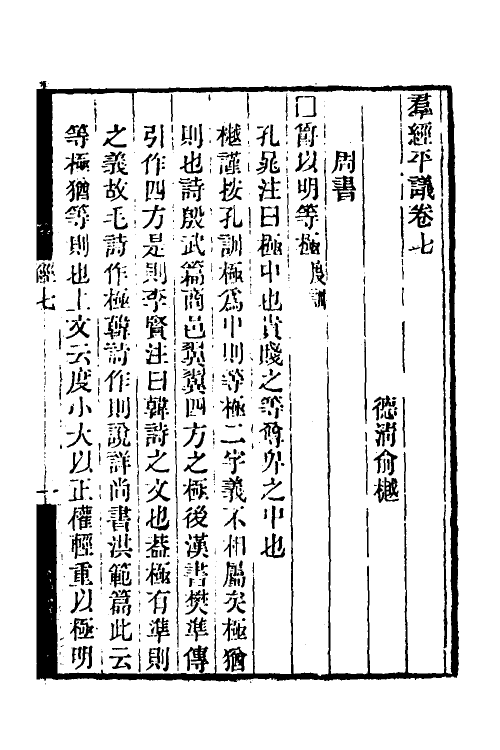 羣經平議卷七
德淸俞樾
周書
□爵以明等極度訓
孔晁注曰極中也貴賤之等尊卑之中也
樾謹按孔訓極爲中則等極二字義不相屬矣極猶
則也詩殷武篇商邑翼翼四方之極後漢書樊準傳
引作四方是則李賢注曰韓詩之文也葢極有準則
之義故毛詩作極韓詩作則說詳尚書洪範篇此云
等極猶等則也上文云度小大以正權輕重以極明
經七
一